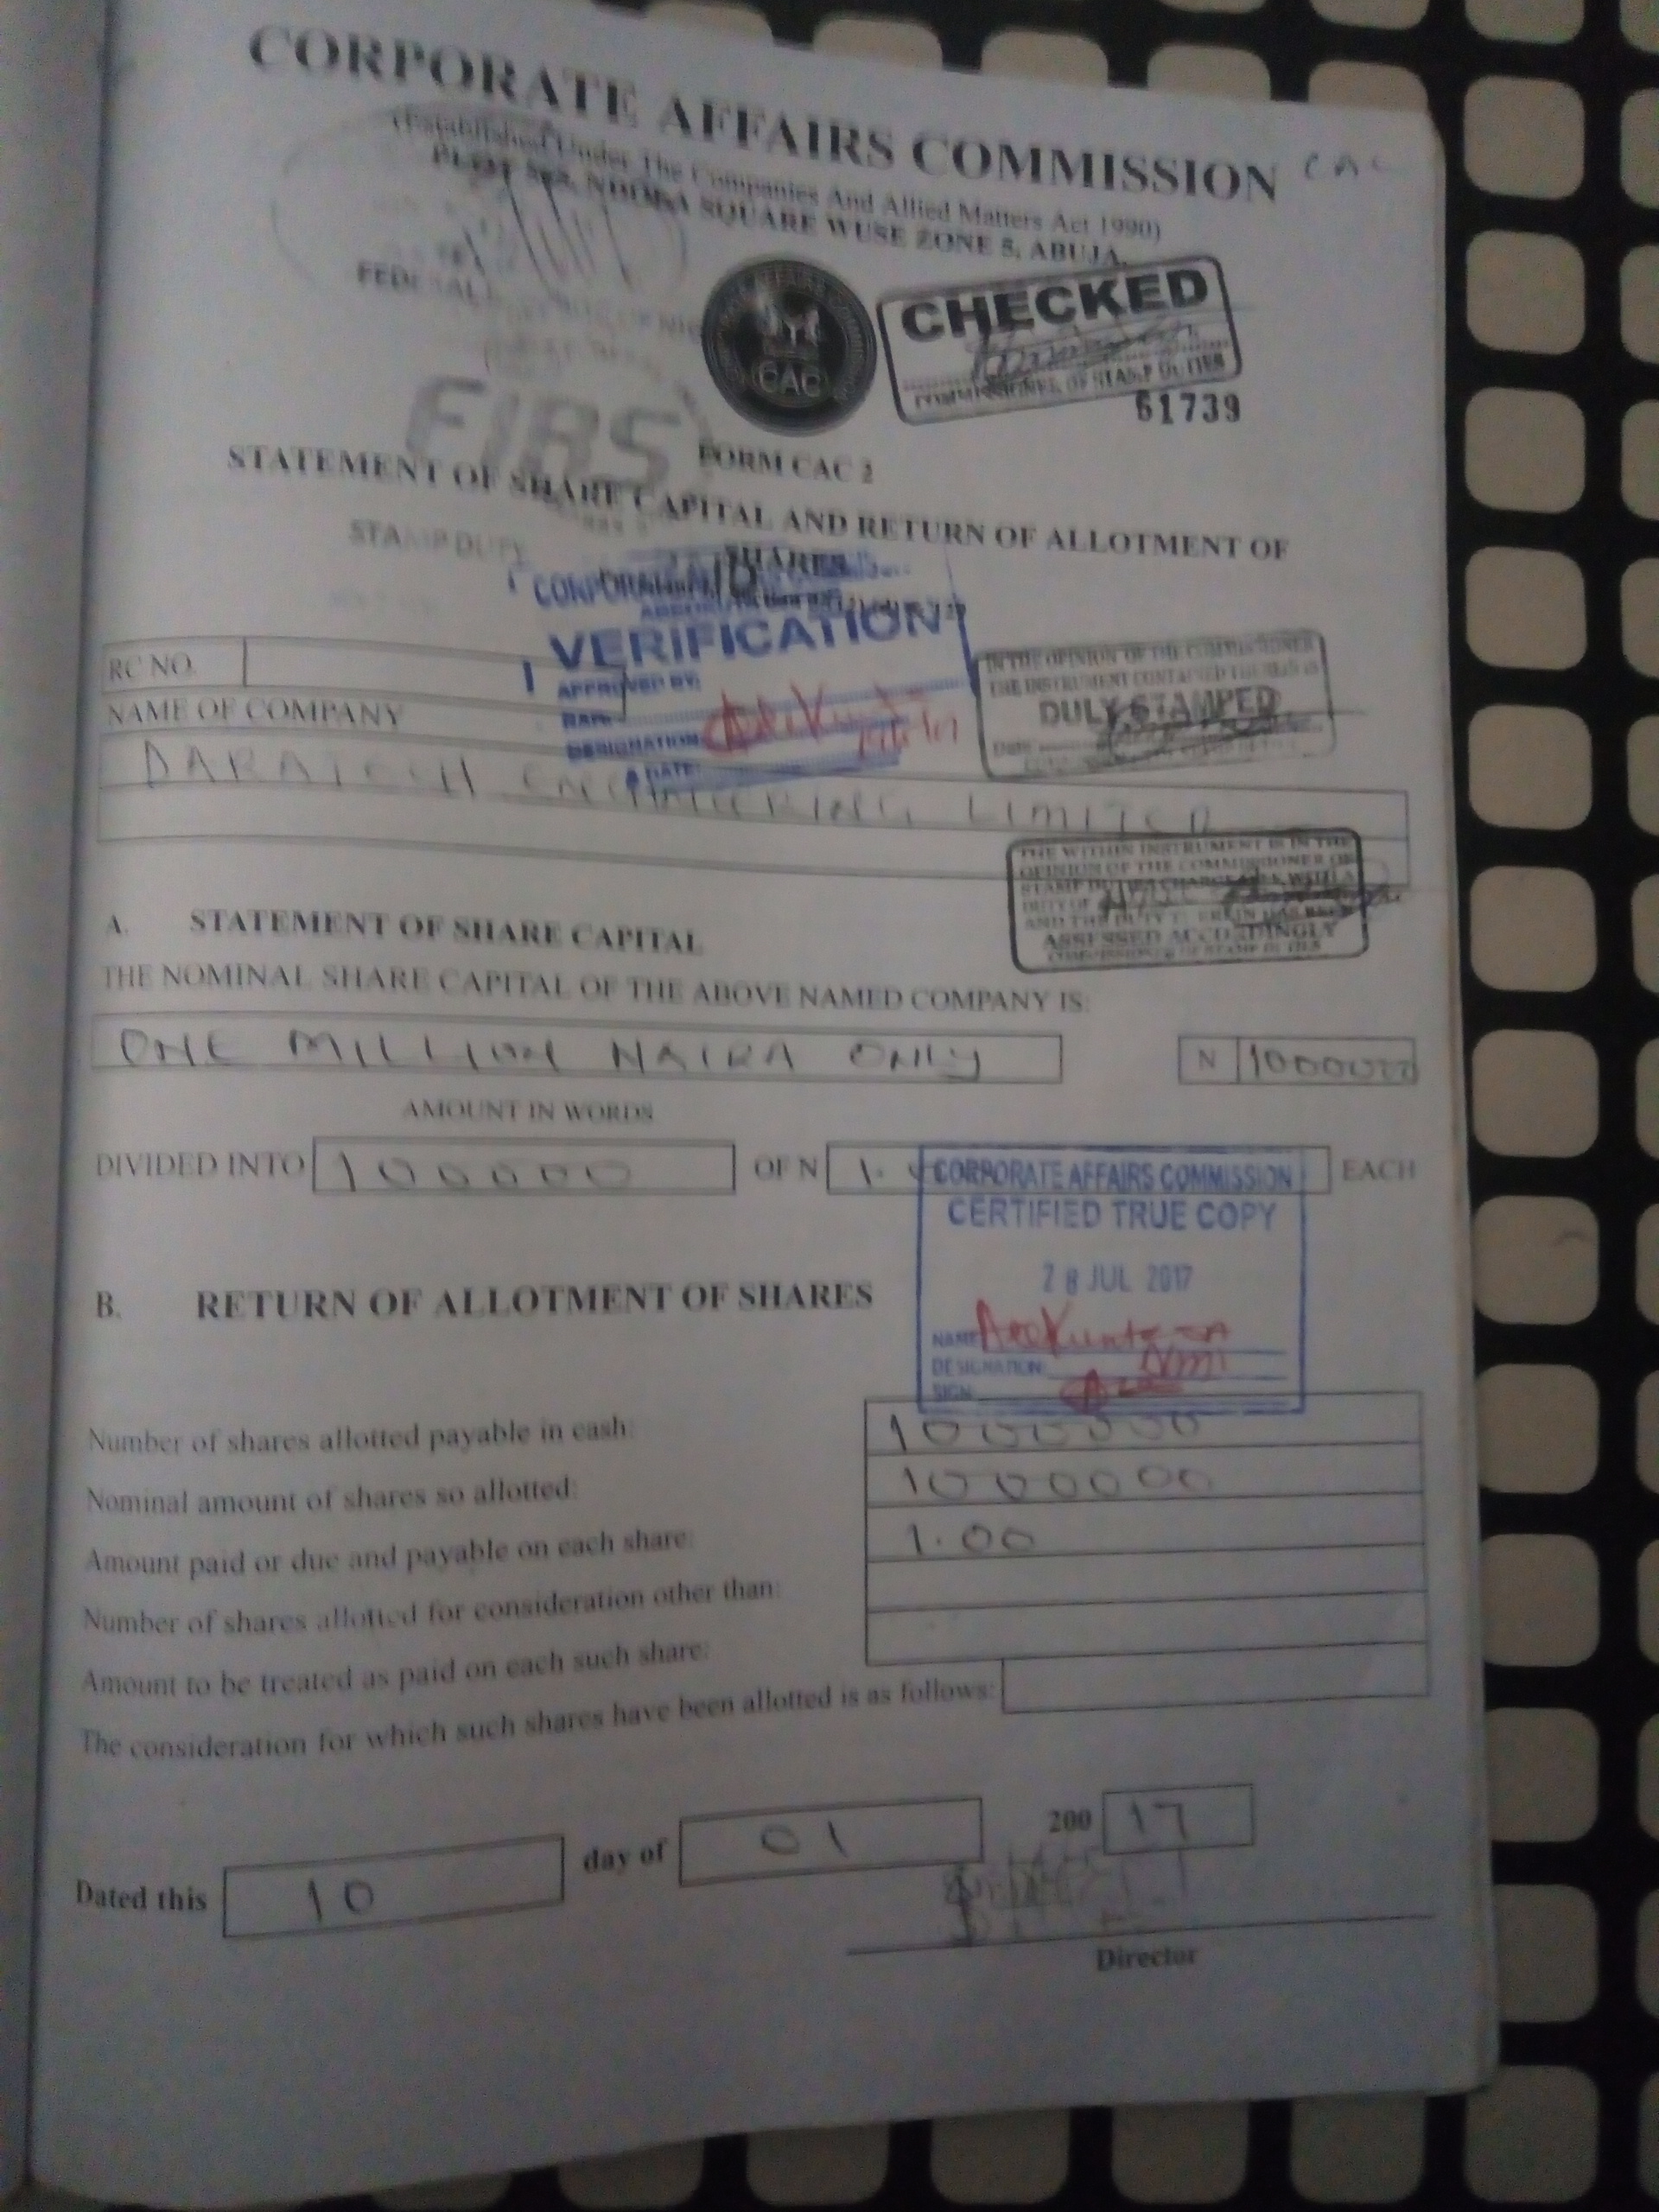 CORPORATE AFFAIRS COMMISSION CAC
(Established Under The Companies And Allied Matters Act 1990)
SQUARE WUSE ZONE 5, ABUJA.
CAC
CHECKED
COMMISSIONER OF STAMP DUTIES
51739
FIRS
FORM CAC 2
STATEMENT OF SHARE CAPITAL AND RETURN OF ALLOTMENT OF
SHARES
STAMP DUTY
VERIFICATION
APPROVED BY:
DESIGNATION
DATE:
RC NO.
NAME OF COMPANY
DARATECH ENGINEERING LIMITED
IN THE OPINION OF THE COMMISSIONER
THE INSTRUMENT CONTAINED
DULY STAMPED
THE WITHIN INSTRUMENT IS IN THE
OPINION OF THE COMMISSIONER OF
DUTY OF
ASSESSED ACCORDINGLY
A. STATEMENT OF SHARE CAPITAL
THE NOMINAL SHARE CAPITAL OF THE ABOVE NAMED COMPANY IS:
ONE MILLION NAIRA ONLY N 1000000
AMOUNT IN WORDS
DIVIDED INTO 100000 OF N 1. EACH
CORPORATE AFFAIRS COMMISSION
CERTIFIED TRUE COPY
28 JUL 2017
NAME
DESIGNATION:
SIGN:
B. RETURN OF ALLOTMENT OF SHARES
Number of shares allotted payable in cash: 1000000
Nominal amount of shares so allotted: 1000000
Amount paid or due and payable on each share: 1.00
Number of shares allotted for consideration other than:
Amount to be treated as paid on each such share:
The consideration for which such shares have been allotted is as follows:
Dated this 10 day of 01 200 17
Director